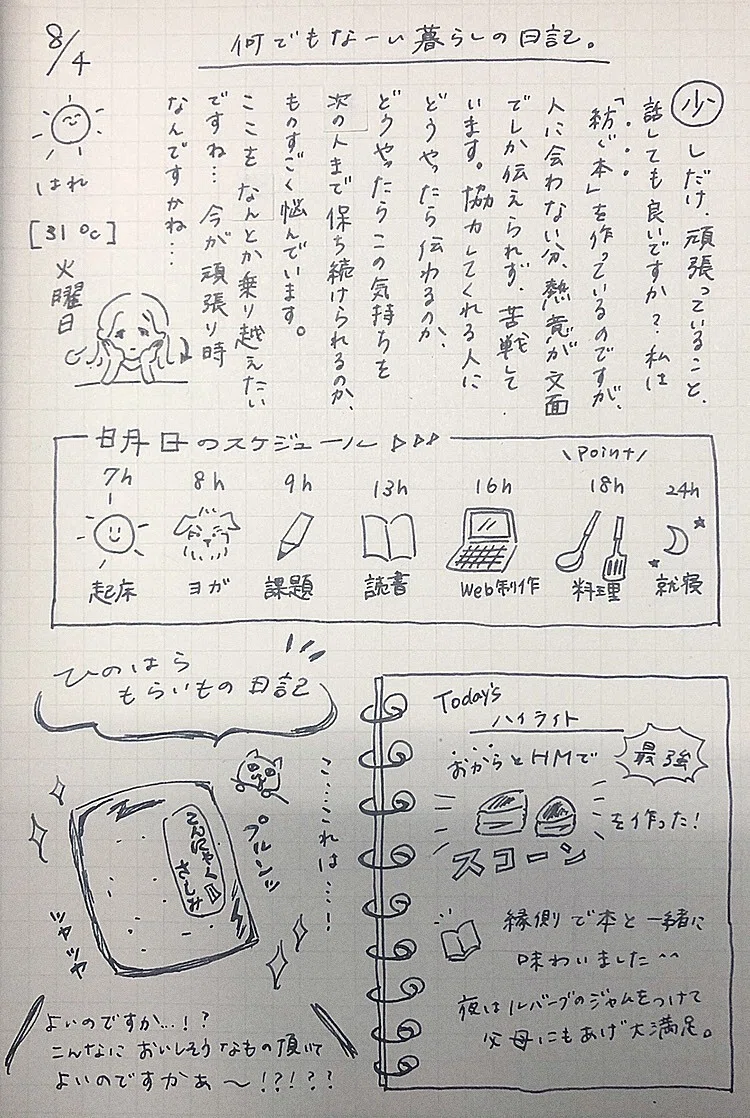 8/4
何でもなーい暮らしの日記。
はれ
[31℃]
火曜日
少しだけ、頑張っていること、
話しても良いですか？私は
「紡ぐ本」を作っているのですが、
人に会わない分、熱意が文面
でしか伝えられず、苦戦して
います。協力してくれる人に
どうやったら伝わるのか、
どうやったらこの気持ちを
次の人まで保ち続けられるのか、
ものすごく悩んでいます。
ここをなんとか乗り越えたい
ですね…今が頑張り時
なんですかね…
明日のスケジュール▷▷▷
\Point/
7h
8h
9h
13h
16h
18h
24h
起床
ヨガ
課題
読書
Web制作
料理
就寝
ひのはら
もらいもの日記
こ…これは…！
プルンッ
こんにゃく
さしみ
ツヤツヤ
よいのですか…！？
こんなにおいしそうなもの頂いて
よいのですかぁ〜！？！？？
Today's
ハイライト
おからとHMで
最強
スコーン
を作った！
縁側で本と一緒に
味わいました^^
夜はルバーブのジャムをつけて
父母にもあげ大満足。